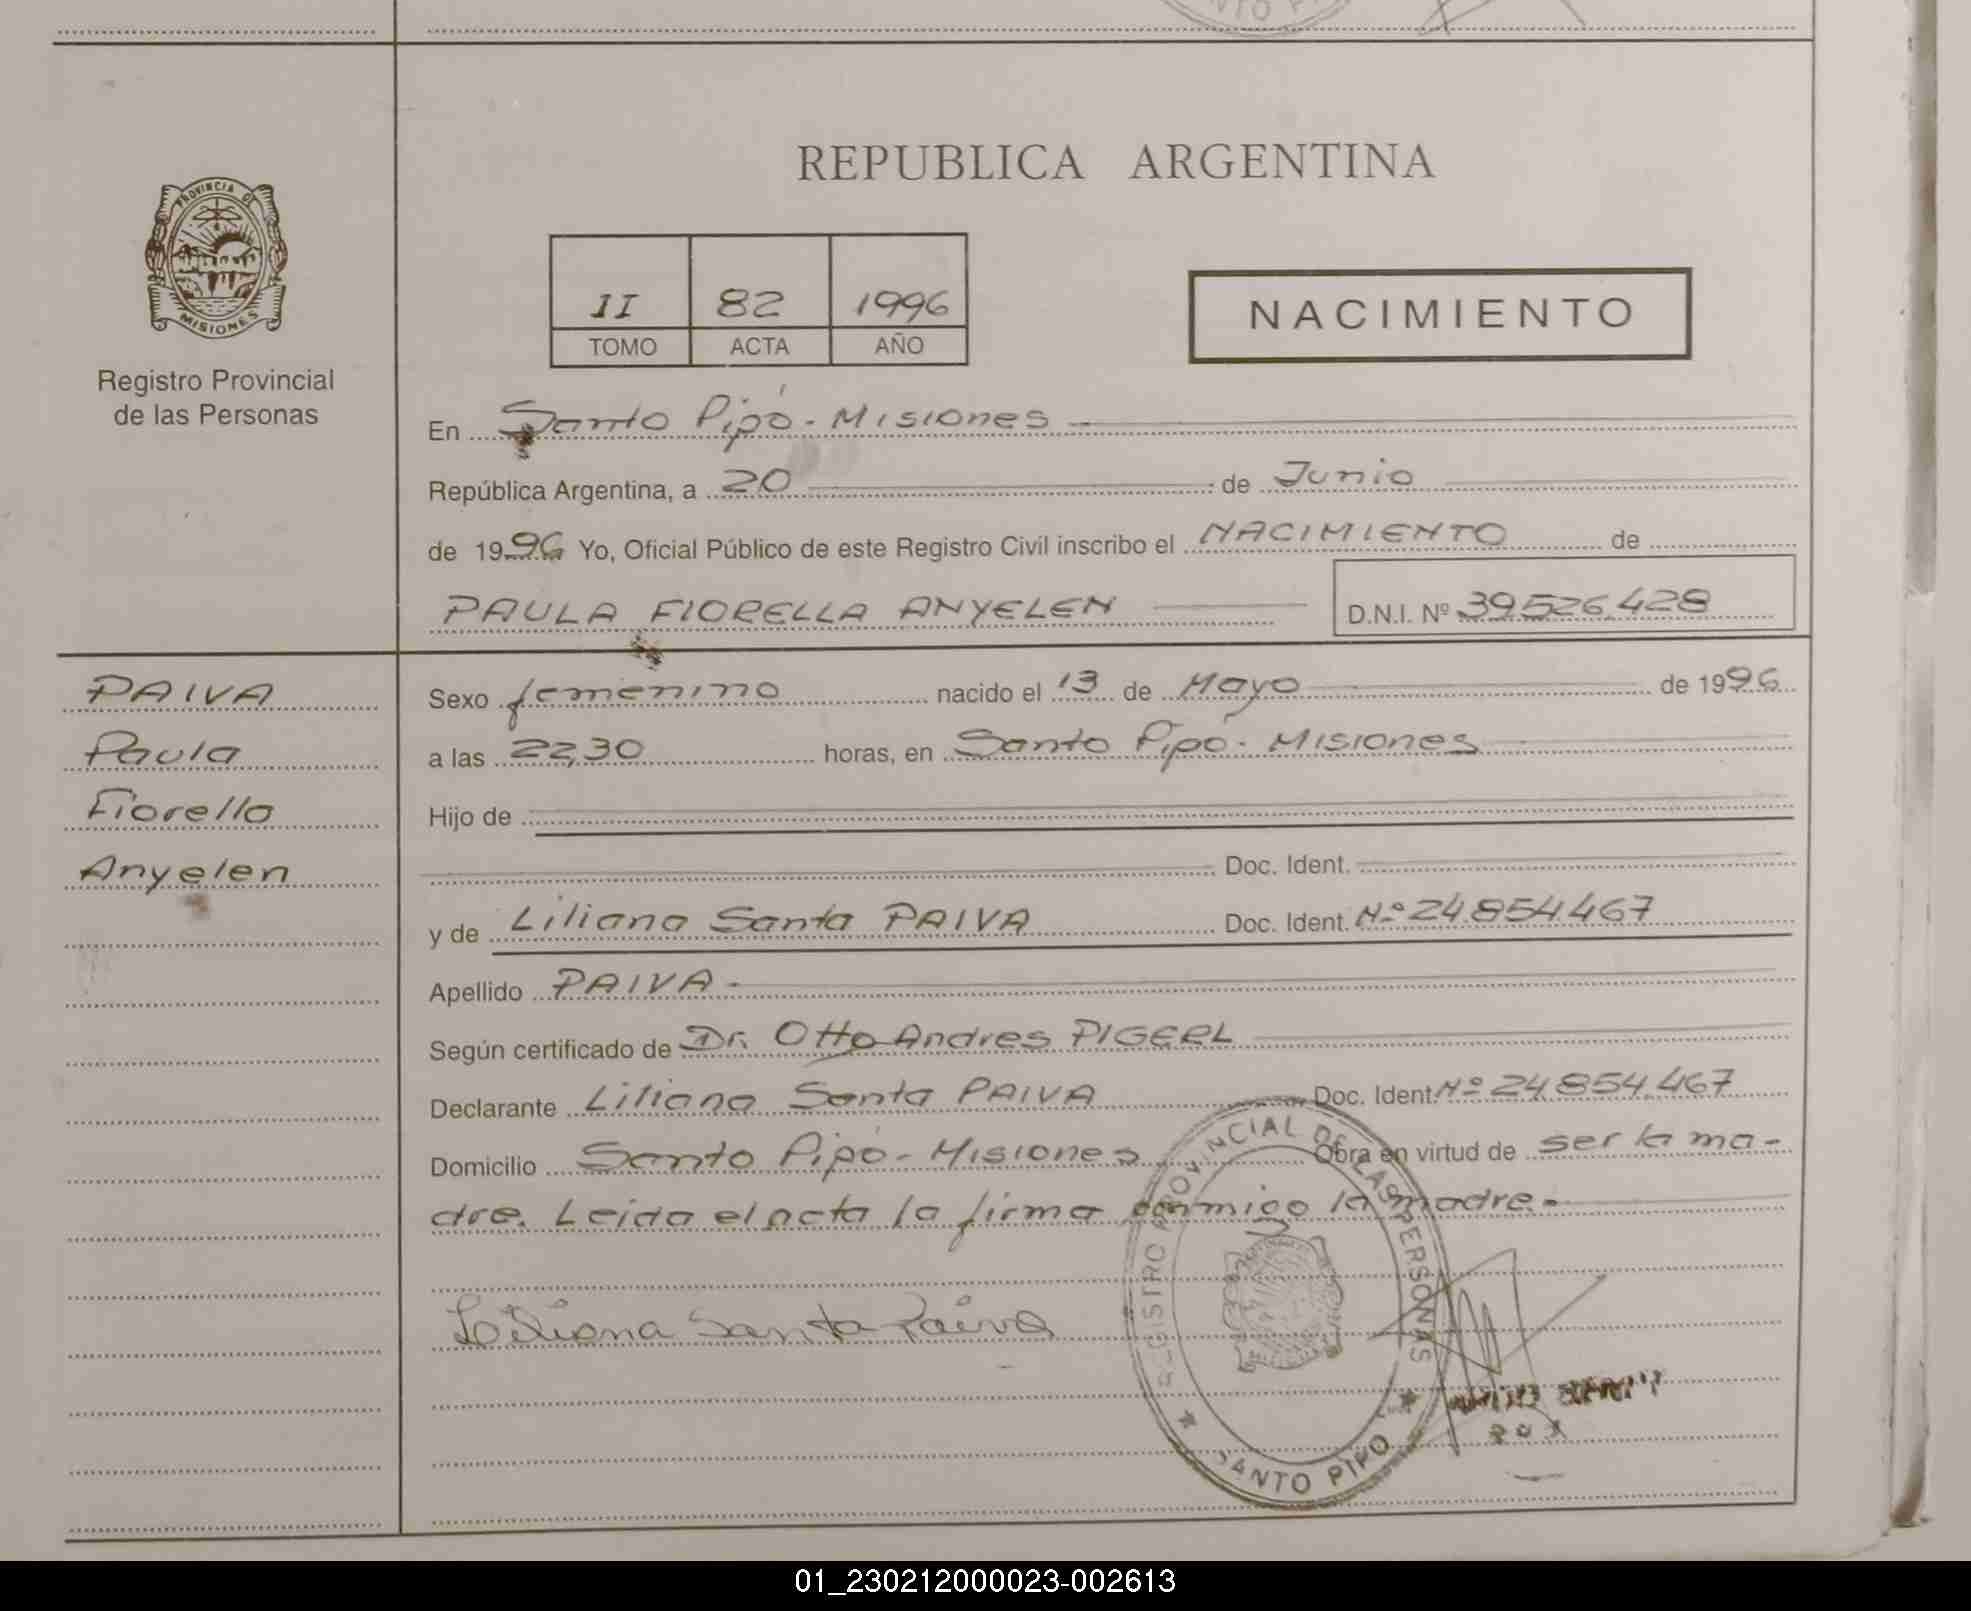 SANTO PI
REPUBLICA ARGENTINA
PROVINCIA DE
MISIONES
Registro Provincial
de las Personas
II 82 1996
TOMO ACTA AÑO
NACIMIENTO
En Santo Pipó - Misiones
República Argentina, a 20 de Junio
de 1996 Yo, Oficial Público de este Registro Civil inscribo el NACIMIENTO de
PAULA FIORELLA ANYELEN D.N.I. Nº 39.526.428
PAIVA
Paula
Fiorella
Anyelen
Sexo femenino nacido el 13 de Mayo de 1996
a las 22,30 horas, en Santo Pipó - Misiones
Hijo de
Doc. Ident.
y de Liliana Santa PAIVA Doc. Ident. Nº 24.854.467
Apellido PAIVA.-
Según certificado de Dr. Otto Andres PIGERL
Declarante Liliana Santa PAIVA Doc. Ident. Nº 24.854.467
Domicilio Santo Pipó - Misiones Obra en virtud de ser la ma-
dre. Leida el acta la firma conmigo la madre.-
Liliana Santa Paiva
REGISTRO PROVINCIAL DE LAS PERSONAS
SANTO PIPO
01_230212000023-002613